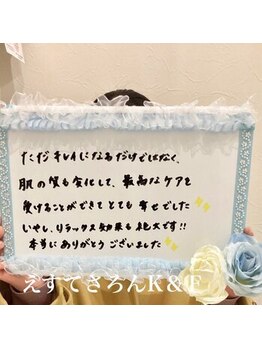 ただキレイになるだけではなく、
肌の質も変化して、最高なケアを
受けることができてとても幸せでした
いやし、リラックス効果も絶大です!!
本当にありがとうございました
えすてさろんK&F